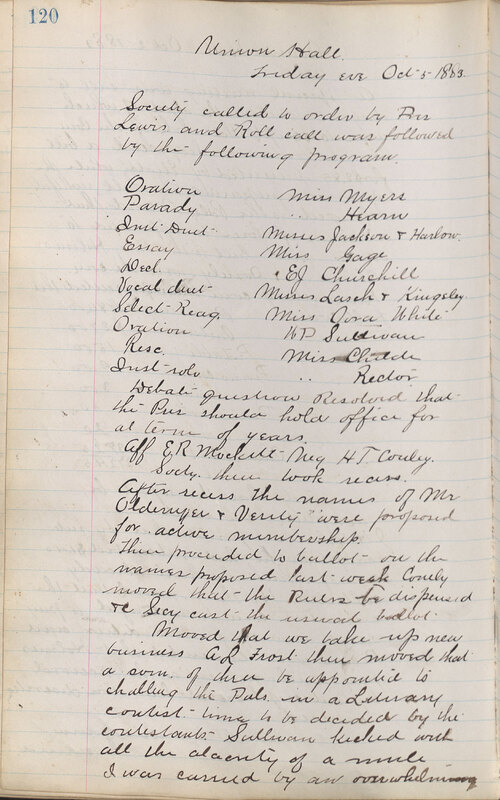 120
Union Hall.
Friday eve Oct 5 1883.
Society called to order by Pres
Lewis and Roll call was followed
by the following program.
Oration Miss Myers
Parady " Hearn
Inst Duet Misses Jackson & Harlow.
Essay Miss Gage
Decl. EJ Churchill
Vocal duet Misses Lasch & Kingsley
Select Reag. Miss Oora White
Oration WP Sullivan
Resc. Miss Childe
Inst solo " Rector
Debate question Resolved that
the Pres should hold office for
a term of years.
Aff E R Mockett Neg H.T. Conley.
Socty. then took recess.
After recess the names of Mr
& Verity were proposed
for active membership.
then proceeded to ballot on the
names proposed last week Conley
moved that the Rules be dispensed
& c Secy cast the usual ballot.
Moved that we take up new
business AL Frost then moved that
a com. of three be appointed to
challeng the Pals. in a Literary
contest time to be decided by the
contestants Sullivan kicked with
all the alacrity of a mule
I was carried by an overwhelming